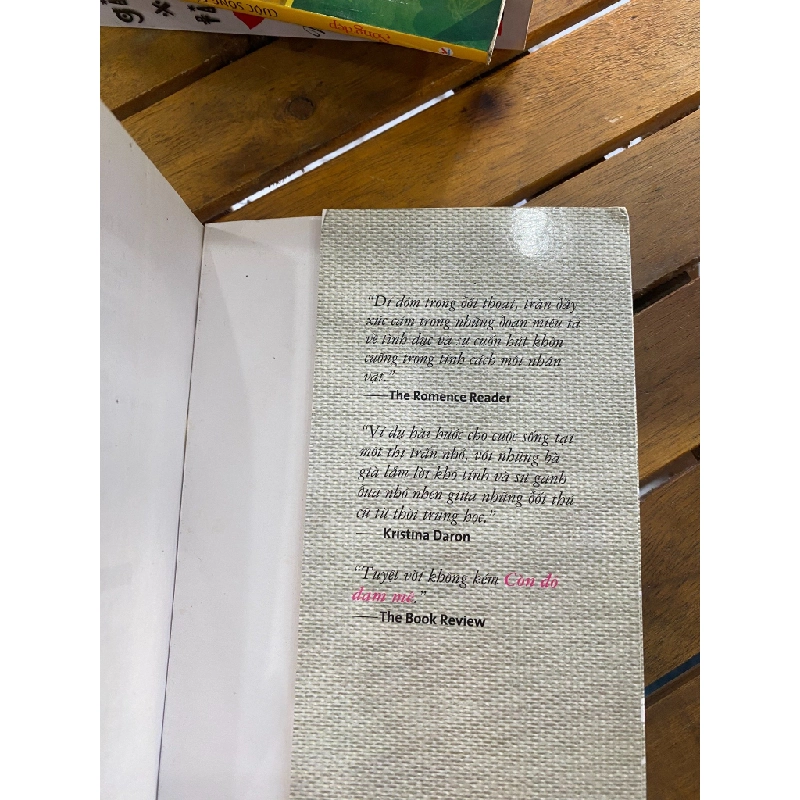 CUỘC SỐNG
"Dí dỏm trong đối thoại, tràn đầy
xúc cảm trong những đoạn miêu tả
về tình dục và sự cuốn hút khôn
cưỡng trong tính cách mỗi nhân
vật."
—The Romence Reader
"Ví dụ hài hước cho cuộc sống tại
một thị trấn nhỏ, với những bà
già lắm lời khó tính và sự ganh
đua nhỏ nhen giữa những đối thủ
cũ từ thời trung học."
— Kristina Daron
"Tuyệt vời không kém Còn đó
đam mê."
—The Book Review